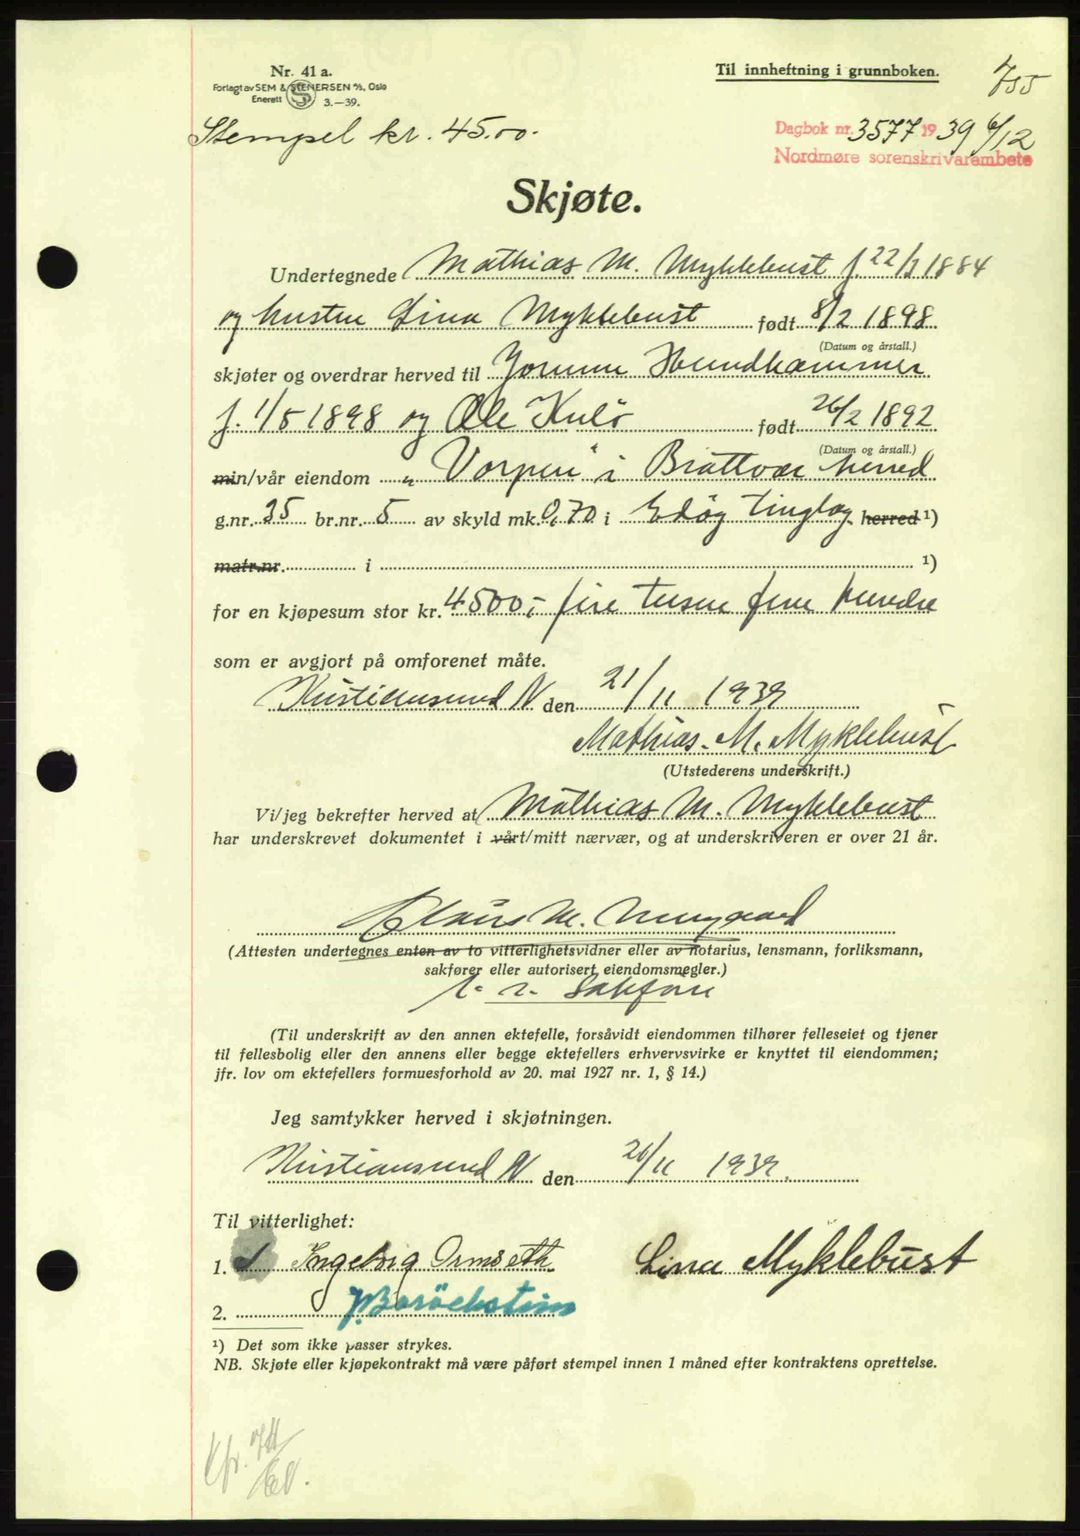 Nr. 41 a.
Forlagt av SEM & STENERSEN A/S, Oslo
Enerett 3.—39.
Til innheftning i grunnboken.
755
Stempel kr. 45.00.
Dagbok nr. 3577 1939 6/12
Nordmøre sorenskrivarembete
Skjøte.
Undertegnede Mathias M. Myklebust f. 22/3 1884
og hustru Lina Myklebust født 8/2 1898
(Datum og årstall.)
skjøter og overdrar herved til Jorunn Hundhammer
f. 1/5 1898 og Ole Kulø født 26/2 1892
(Datum og årstall.)
min/vår eiendom „Vorpen" i Brattvær herred
g.nr. 35 br.nr. 5 av skyld mk. 0,70 i Edøy tinglag herred ¹)
matr.nr. i ¹)
for en kjøpesum stor kr. 4500,- fire tusen fem hundre
som er avgjort på omforenet måte.
Kristiansund N den 21/11 1939
Mathias. M. Myklebust
(Utstederens underskrift.)
Vi/jeg bekrefter herved at Mathias M. Myklebust
har underskrevet dokumentet i vårt/mitt nærvær, og at underskriveren er over 21 år.
M.
(Attesten undertegnes enten av to vitterlighetsvidner eller av notarius, lensmann, forliksmann,
sakfører eller autorisert eiendomsmegler.)
sakfører
(Til underskrift av den annen ektefelle, forsåvidt eiendommen tilhører felleseiet og tjener
til fellesbolig eller den annens eller begge ektefellers erhvervsvirke er knyttet til eiendommen;
jfr. lov om ektefellers formuesforhold av 20. mai 1927 nr. 1, § 14.)
Jeg samtykker herved i skjøtningen.
Kristiansund N den 21/11 1939.
Til vitterlighet:
1. Ingeborg Ormseth Lina Myklebust
2.
¹) Det som ikke passer strykes.
NB. Skjøte eller kjøpekontrakt må være påført stempel innen 1 måned efter kontraktens oprettelse.